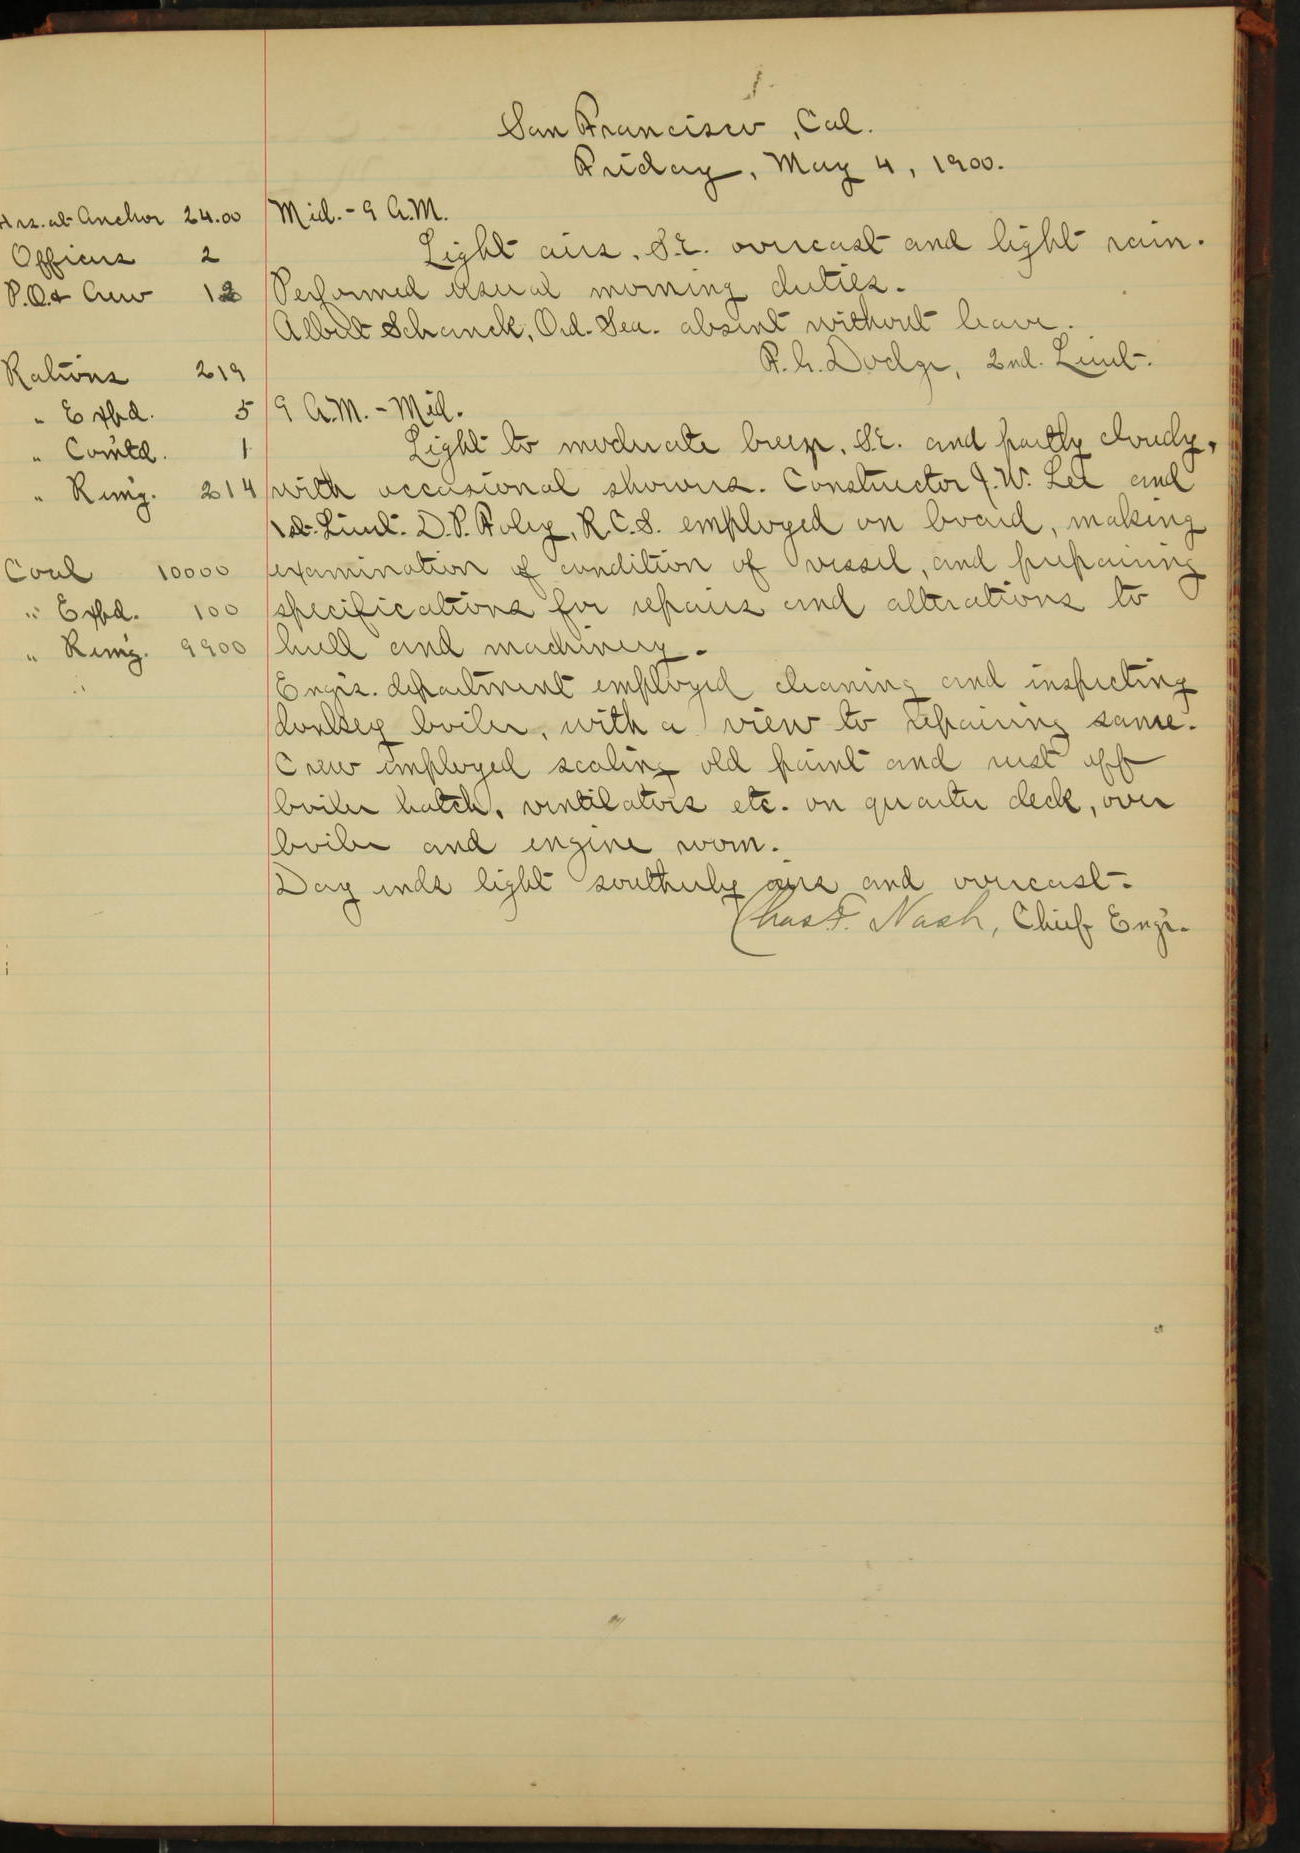 San Francisco, Cal.
Friday, May 4, 1900.
Hrs. at Anchor 24.00
Officers 2
P.O. & Crew 12
Rations 219
" Expd. 5
" Com'td. 1
" Rem'g. 214
Coal 10000
" Expd. 100
" Rem'g. 9900
Mid. - 9 A.M.
Light airs, S.E. overcast and light rain.
Performed usual morning duties.
Albert Schanck, Ord. Sea. absent without leave.
F. G. Dodge, 2nd. Lieut.
9 A.M. - Mid.
Light to moderate breeze, S.E. and partly cloudy,
with occasional showers. Constructor J. W. Lee and
1st. Lieut. D. P. Foley, R.C.S. employed on board, making
examination of condition of vessel, and preparing
specifications for repairs and alterations to
hull and machinery.
Engr's. department employed cleaning and inspecting
donkey boiler, with a view to repairing same.
Crew employed scaling old paint and rust off
boiler hatch, ventilators etc. on quarter deck, over
boiler and engine room.
Day ends light southerly airs and overcast.
Chas. F. Nash, Chief Engr.